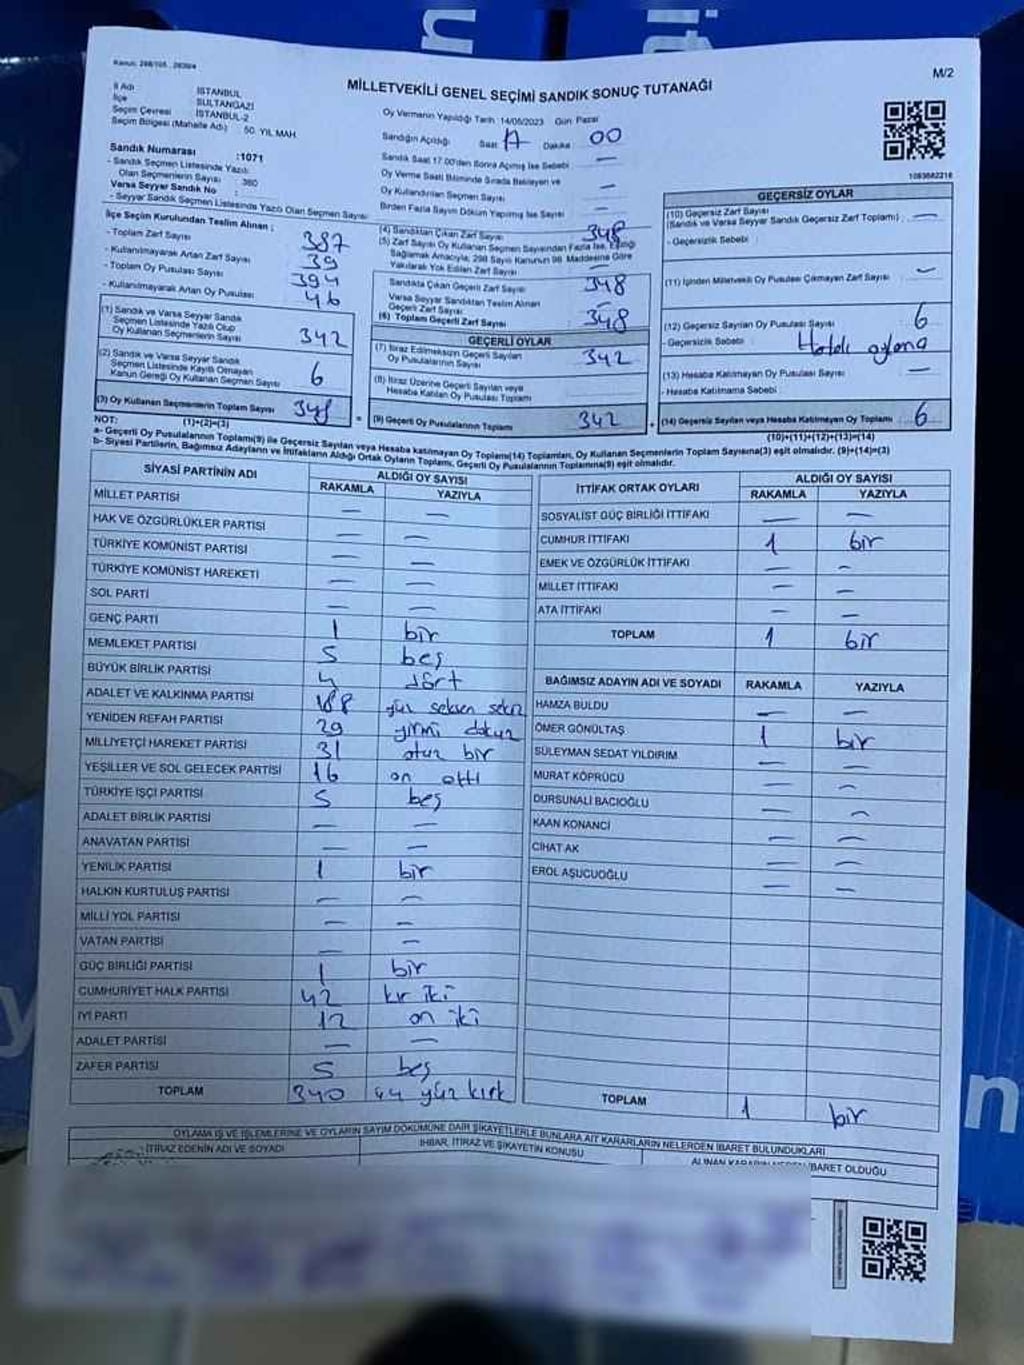 Kanun: 298/105
M/2
MİLLETVEKİLİ GENEL SEÇİMİ SANDIK SONUÇ TUTANAĞI
İl Adı : İSTANBUL
İlçe : SULTANGAZİ
Seçim Çevresi : İSTANBUL-2
Seçim Bölgesi (Mahalle Adı) : 50. YIL MAH
Sandık Numarası :1071
- Sandık Seçmen Listesinde Yazılı
Olan Seçmenlerin Sayısı : 380
Varsa Seyyar Sandık No :
- Seyyar Sandık Seçmen Listesinde Yazılı Olan Seçmen Sayısı
Oy Vermenin Yapıldığı Tarih : 14/05/2023 Gün: Pazar
Sandığın Açıldığı Saat : 17 Dakika : 00
Sandık Saat 17.00'den Sonra Açılmış İse Sebebi : —
Oy Verme Saati Bitiminde Sırada Bekleyen ve
Oy Kullandırılan Seçmen Sayısı : —
Birden Fazla Sayım Döküm Yapılmış İse Sayısı : —
1093682216
İlçe Seçim Kurulundan Teslim Alınan ;
- Toplam Zarf Sayısı : 387
- Kullanılmayarak Artan Zarf Sayısı : 39
- Toplam Oy Pusulası Sayısı : 394
- Kullanılmayarak Artan Oy Pusulası : 46
(1) Sandık ve Varsa Seyyar Sandık
Seçmen Listesinde Yazılı Olup
Oy Kullanan Seçmenlerin Sayısı : 342
(2) Sandık ve Varsa Seyyar Sandık
Seçmen Listesinde Kayıtlı Olmayan
Kanun Gereği Oy Kullanan Seçmen Sayısı : 6
(3) Oy Kullanan Seçmenlerin Toplam Sayısı : 348
(1)+(2)=(3)
(4) Sandıktan Çıkan Zarf Sayısı : 348
(5) Zarf Sayısı Oy Kullanan Seçmen Sayısından Fazla İse, Eşitliği
Sağlamak Amacıyla, 298 Sayılı Kanunun 98. Maddesine Göre
Yakılarak Yok Edilen Zarf Sayısı : —
Sandıkta Çıkan Geçerli Zarf Sayısı : 348
Varsa Seyyar Sandıktan Teslim Alınan
Geçerli Zarf Sayısı : —
(6) Toplam Geçerli Zarf Sayısı : 348
GEÇERLİ OYLAR
(7) İtiraz Edilmeksizin Geçerli Sayılan
Oy Pusulalarının Sayısı : 342
(8) İtiraz Üzerine Geçerli Sayılan veya
Hesaba Katılan Oy Pusulası Toplamı :
(9) Geçerli Oy Pusulalarının Toplamı : 342
GEÇERSİZ OYLAR
(10) Geçersiz Zarf Sayısı
(Sandık ve Varsa Seyyar Sandık Geçersiz Zarf Toplamı) : —
- Geçersizlik Sebebi :
(11) İçinden Milletvekili Oy Pusulası Çıkmayan Zarf Sayısı : —
(12) Geçersiz Sayılan Oy Pusulası Sayısı : 6
- Geçersizlik Sebebi : Hatalı oylama
(13) Hesaba Katılmayan Oy Pusulası Sayısı : —
- Hesaba Katılmama Sebebi :
(14) Geçersiz Sayılan veya Hesaba Katılmayan Oy Toplamı : 6
(10)+(11)+(12)+(13)=(14)
NOT:
a- Geçerli Oy Pusulalarının Toplamı(9) ile Geçersiz Sayılan veya Hesaba katılmayan Oy Toplamı(14) Toplamları, Oy Kullanan Seçmenlerin Toplam Sayısına(3) eşit olmalıdır. (9)+(14)=(3)
b- Siyasi Partilerin, Bağımsız Adayların ve İttifakların Aldığı Ortak Oyların Toplamı, Geçerli Oy Pusulalarının Toplamına(9) eşit olmalıdır.
SİYASİ PARTİNİN ADI ALDIĞI OY SAYISI
RAKAMLA YAZIYLA
MİLLET PARTİSİ — —
HAK VE ÖZGÜRLÜKLER PARTİSİ — —
TÜRKİYE KOMÜNİST PARTİSİ — —
TÜRKİYE KOMÜNİST HAREKETİ — —
SOL PARTİ — —
GENÇ PARTİ 1 bir
MEMLEKET PARTİSİ 5 beş
BÜYÜK BİRLİK PARTİSİ 4 dört
ADALET VE KALKINMA PARTİSİ 188 yüz seksen sekiz
YENİDEN REFAH PARTİSİ 29 yirmi dokuz
MİLLİYETÇİ HAREKET PARTİSİ 31 otuz bir
YEŞİLLER VE SOL GELECEK PARTİSİ 16 on altı
TÜRKİYE İŞÇİ PARTİSİ 5 beş
ADALET BİRLİK PARTİSİ — —
ANAVATAN PARTİSİ — —
YENİLİK PARTİSİ 1 bir
HALKIN KURTULUŞ PARTİSİ — —
MİLLİ YOL PARTİSİ — —
VATAN PARTİSİ — —
GÜÇ BİRLİĞİ PARTİSİ 1 bir
CUMHURİYET HALK PARTİSİ 42 kır iki
İYİ PARTİ 12 on iki
ADALET PARTİSİ — —
ZAFER PARTİSİ 5 beş
TOPLAM 340 yüz kırk
İTTİFAK ORTAK OYLARI ALDIĞI OY SAYISI
RAKAMLA YAZIYLA
SOSYALİST GÜÇ BİRLİĞİ İTTİFAKI — —
CUMHUR İTTİFAKI 1 bir
EMEK VE ÖZGÜRLÜK İTTİFAKI — —
MİLLET İTTİFAKI — —
ATA İTTİFAKI — —
TOPLAM 1 bir
BAĞIMSIZ ADAYIN ADI VE SOYADI RAKAMLA YAZIYLA
HAMZA BULDU — —
ÖMER GÖNÜLTAŞ 1 bir
SÜLEYMAN SEDAT YILDIRIM — —
MURAT KÖPRÜCÜ — —
DURSUNALİ BACIOĞLU — —
KAAN KONANCİ — —
CİHAT AK — —
EROL AŞUCUOĞLU — —
TOPLAM 1 bir
OYLAMA İŞ VE İŞLEMLERİNE VE OYLARIN SAYIM DÖKÜMÜNE DAİR ŞİKAYETLERLE BUNLARA AİT KARARLARIN NELERDEN İBARET BULUNDUKLARI
İTİRAZ EDENİN ADI VE SOYADI İHBAR, İTİRAZ VE ŞİKAYETİN KONUSU ALINAN KARARIN NEDEN İBARET OLDUĞU